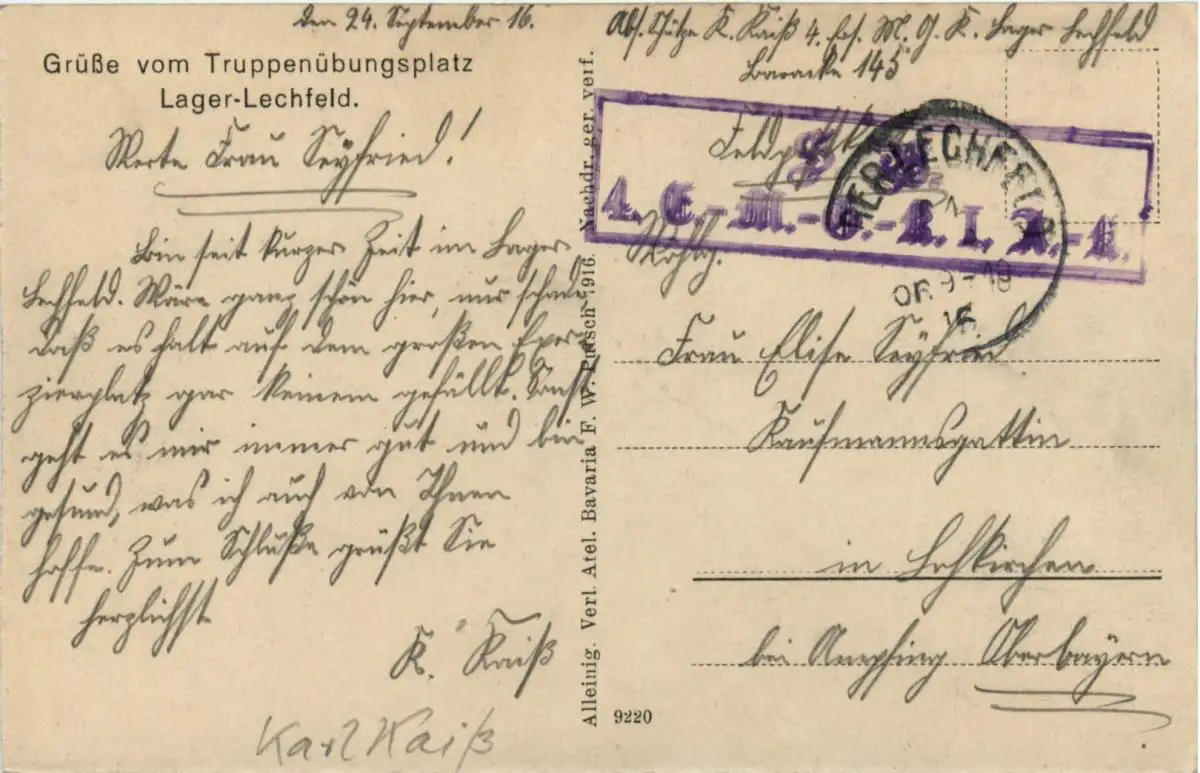 Den 24. September 16.
Grüße vom Truppenübungsplatz
Lager-Lechfeld.
Werte Frau Seyfried!
Bin seit kurzer Zeit im Lager
Lechfeld. Wäre ganz schön hier, nur schade,
daß es halt auf dem großen Exer-
zierplatz gar keinem gefällt. Sonst
geht es mir immer gut und bin
gesund, was ich auch von Ihnen
hoffe. Zum Schluße grüßt Sie
herzlichst
K. Kaiß
Karl Kaiß
Alleinig. Verl. Atel. Bavaria F. W. Putsch 1916. Nachdr. ger. verf.
9220
Abs. Schütze K. Kaiß 4. Ers. M. G. K. Lager Lechfeld
Baracke 145
S. B.
4. E.-M.-G.-K. I. A.-K.
LAGER LECHFELD
9-10
16
Wohlg.
Frau Elise Seyfried
Kaufmannsgattin
in Lohkirchen
bei Ampfing Oberbayern